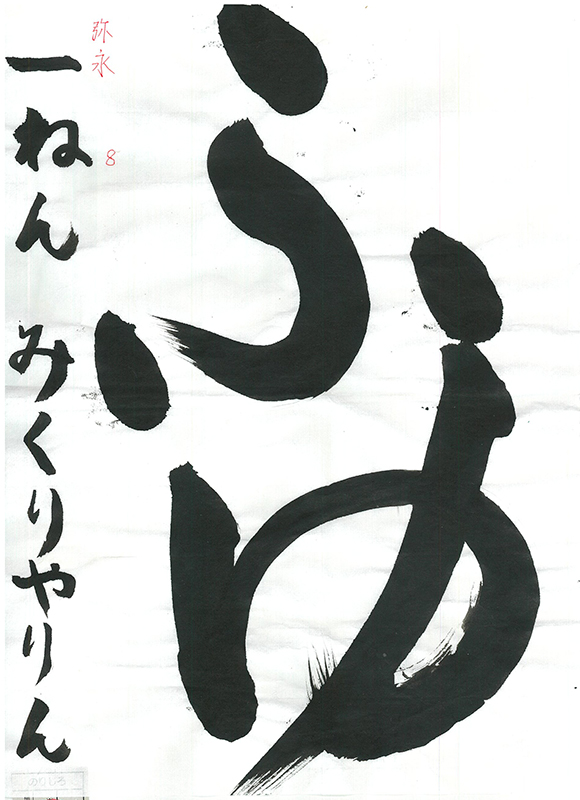 ふゆ
一ねん みくりやりん
弥永
8
のりしろ